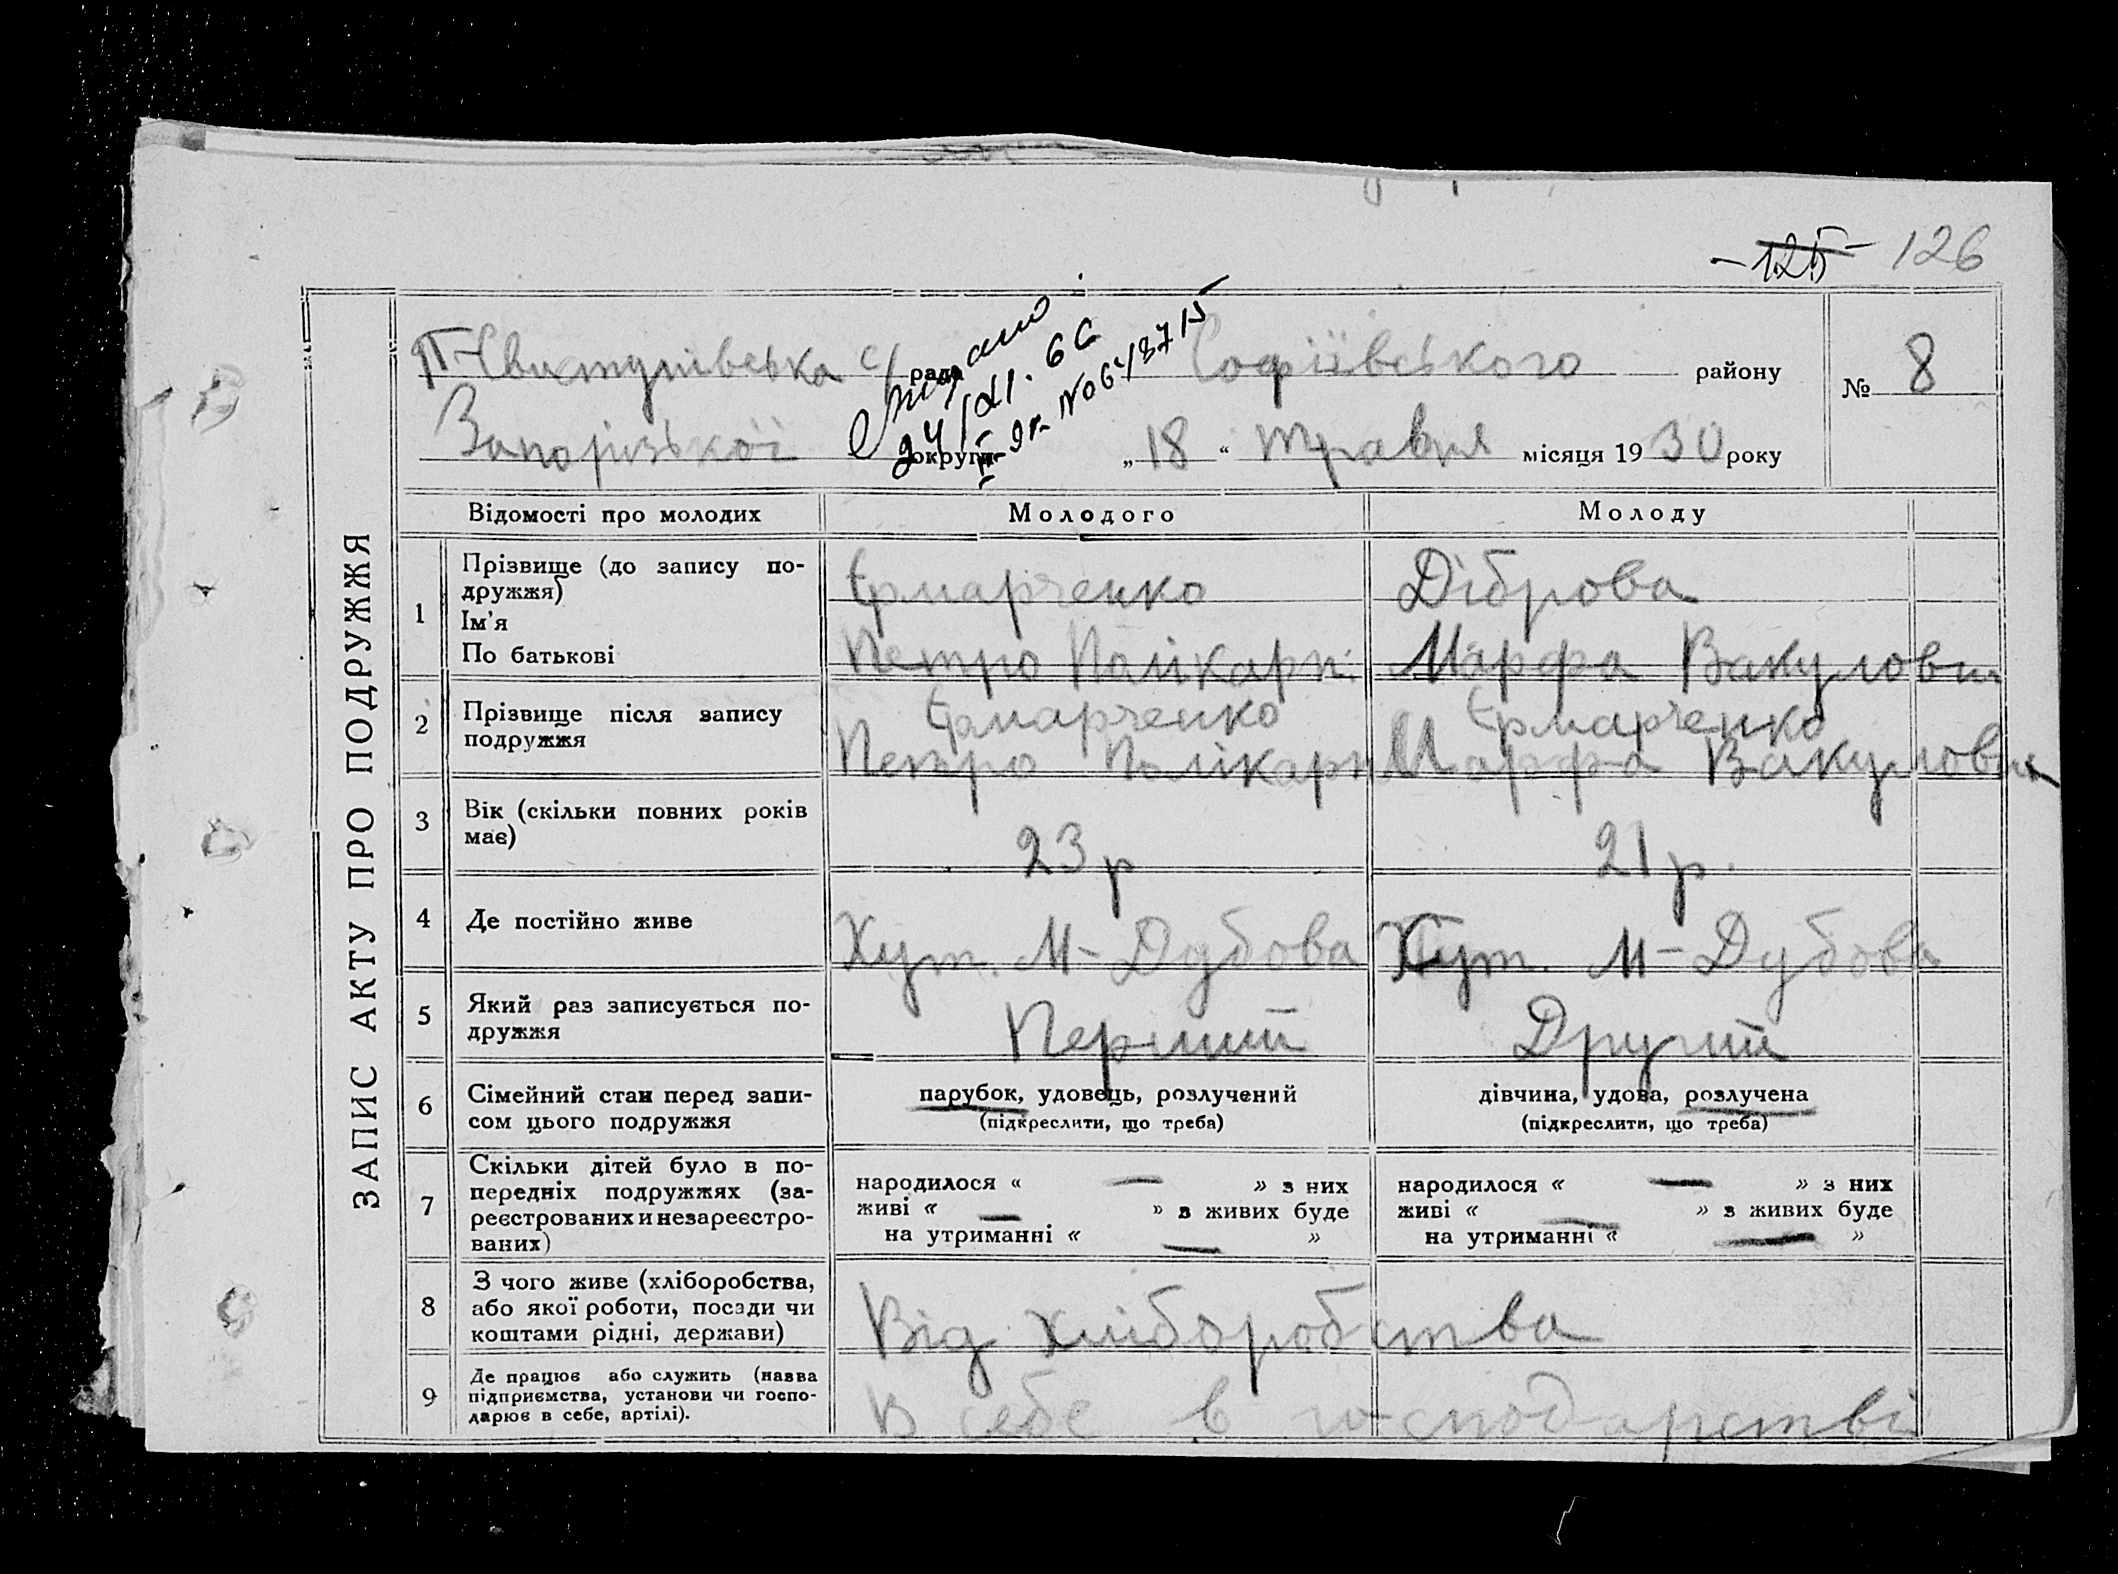 125 126
П-Свистунівська с/рада Софіївського району № 8
Запорізької округи „18“ травня місяця 1930 року
24/XI. 66
ЗАПИС АКТУ ПРО ПОДРУЖЖЯ
Відомості про молодих Молодого Молоду
1 Прізвище (до запису по-
дружжя) Єрмарченко Діброва
Ім'я
По батькові Петро Полікарп. Марфа Вакуловн
2 Прізвище після запису
подружжя Єрмарченко Єрмарченко
Петро Полікарп Марфа Вакуловна
3 Вік (скільки повних років
має) 23 р 21 р.
4 Де постійно живе Хут. М-Дубова Хут. М-Дубова
5 Який раз записується по-
дружжя Перший Другий
6 Сімейний стан перед запи-
сом цього подружжя
парубок, удовець, розлучений дівчина, удова, розлучена
(підкреслити, що треба) (підкреслити, що треба)
7 Скільки дітей було в по-
передніх подружжях (за-
реєстрованих и незареєстро-
ваних)
народилося « — » з них народилося « — » з них
живі « — » з живих буде живі « — » з живих буде
на утриманні « — » на утриманні « — »
8 З чого живе (хліборобства,
або якої роботи, посади чи
коштами рідні, держави) Від хліборобства
9 Де працює або служить (назва
підприємства, установи чи госпо-
дарює в себе, артілі). В себе в господарстві